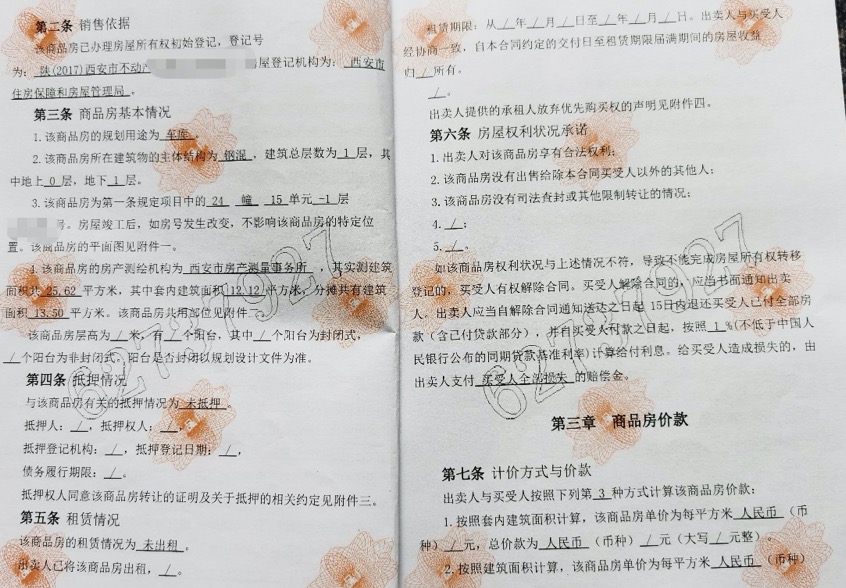 第二条 销售依据
该商品房已办理房屋所有权初始登记，登记号
为：陕(2017)西安市不动产 屋登记机构为：西安市
住房保障和房屋管理局。
第三条 商品房基本情况
1.该商品房的规划用途为 车库 。
2.该商品房所在建筑物的主体结构为 钢混 ，建筑总层数为 1 层，其
中地上 0 层，地下 1 层。
3.该商品房为第一条规定项目中的 24 幢 15 单元 -1 层
号。房屋竣工后，如房号发生改变，不影响该商品房的特定位
置。该商品房的平面图见附件一。
4.该商品房的房产测绘机构为 西安市房产测量事务所 ，其实测建筑
面积共 25.62 平方米，其中套内建筑面积 12.12 平方米，分摊共有建筑
面积 13.50 平方米。该商品房共用部位见附件二。
该商品房层高为 / 米，有 / 个阳台，其中 / 个阳台为封闭式，
/ 个阳台为非封闭式。阳台是否封闭以规划设计文件为准。
第四条 抵押情况
与该商品房有关的抵押情况为 未抵押 。
抵押人： / ，抵押权人： / ，
抵押登记机构： / ，抵押登记日期： / ，
债务履行期限： / 。
抵押权人同意该商品房转让的证明及关于抵押的相关约定见附件三。
第五条 租赁情况
该商品房的租赁情况为 未出租 。
出卖人已将该商品房出租， / 。
租赁期限：从 / 年 / 月 / 日至 / 年 / 月 / 日。出卖人与买受人
经协商一致，自本合同约定的交付日至租赁期限届满期间的房屋收益
归 / 所有。
/ 。
出卖人提供的承租人放弃优先购买权的声明见附件四。
第六条 房屋权利状况承诺
1.出卖人对该商品房享有合法权利；
2.该商品房没有出售给除本合同买受人以外的其他人；
3.该商品房没有司法查封或其他限制转让的情况；
4. / ；
5. / 。
如该商品房权利状况与上述情况不符，导致不能完成房屋所有权转移
登记的，买受人有权解除合同。买受人解除合同的，应当书面通知出卖
人。出卖人应当自解除合同通知送达之日起 15日内退还买受人已付全部房
款（含己付贷款部分），并自买受人付款之日起，按照 1 %(不低于中国人
民银行公布的同期贷款基准利率)计算给付利息。给买受人造成损失的，由
出卖人支付 买受人全部损失 的赔偿金。
第三章 商品房价款
第七条 计价方式与价款
出卖人与买受人按照下列第 3 种方式计算该商品房价款：
1.按照套内建筑面积计算，该商品房单价为每平方米 人民币 （币
种） / 元，总价款为 人民币 （币种） / 元（大写 / 元整）。
2.按照建筑面积计算，该商品房单价为每平方米 人民币 （币种）